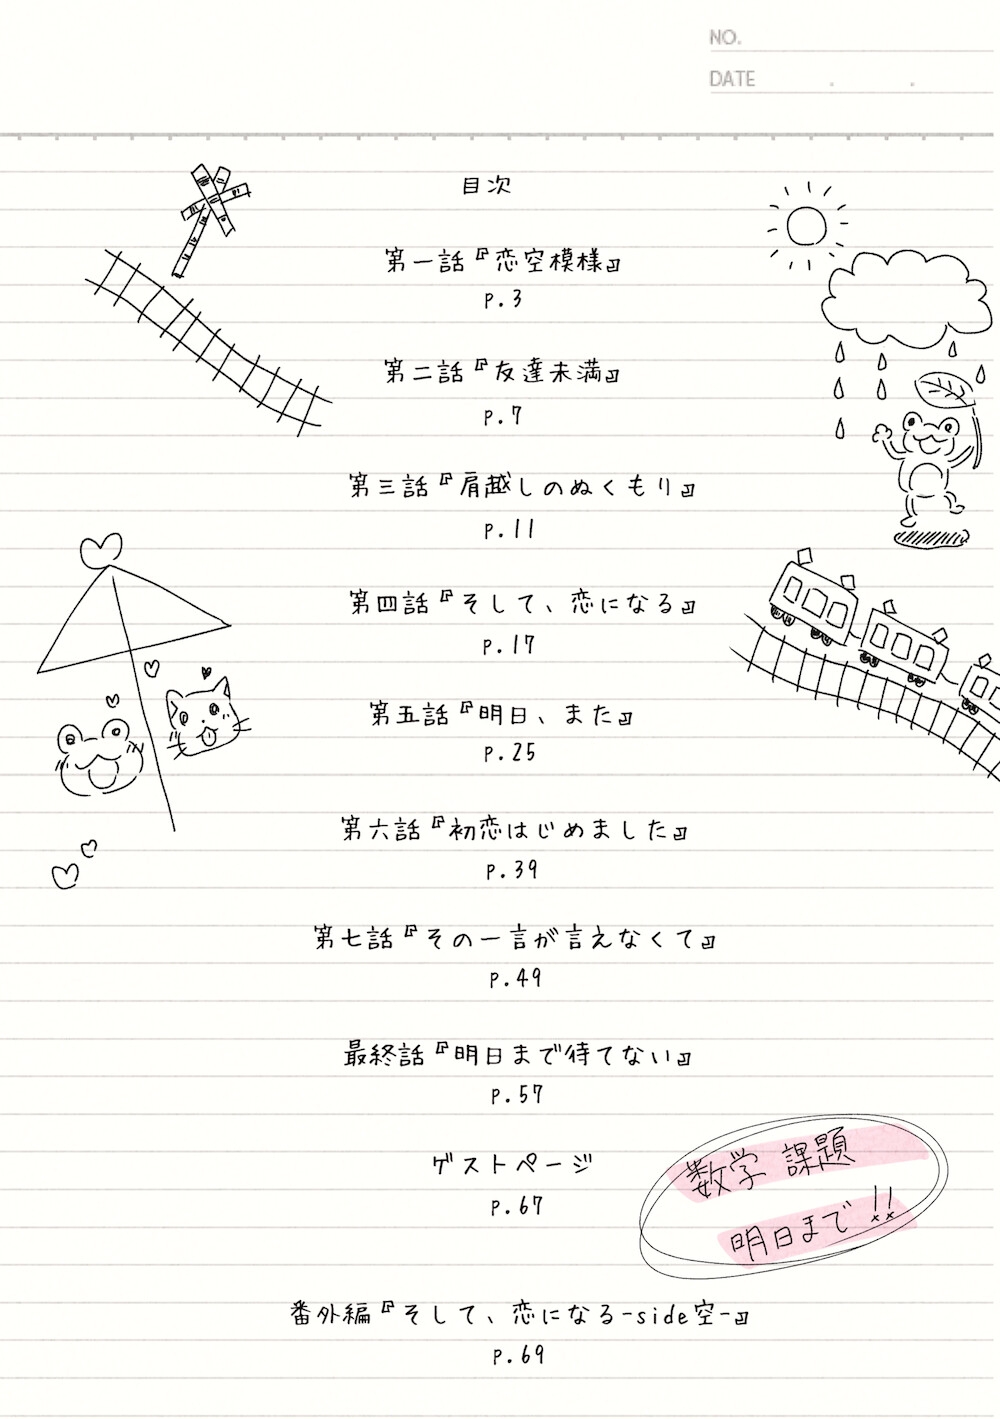 NO.
DATE . .
目次
第一話『恋空模様』
P.3
第二話『友達未満』
P.7
第三話『肩越しのぬくもり』
P.11
第四話『そして、恋になる』
P.17
第五話『明日、また』
P.25
第六話『初恋はじめました』
P.39
第七話『その一言が言えなくて』
P.49
最終話『明日まで待てない』
P.57
ゲストページ
P.67
数学 課題
明日まで!!
番外編『そして、恋になる-side空-』
P.69